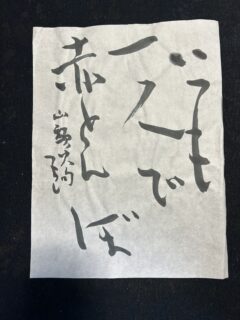 いつも
一人で
赤とんぼ
山頭火句